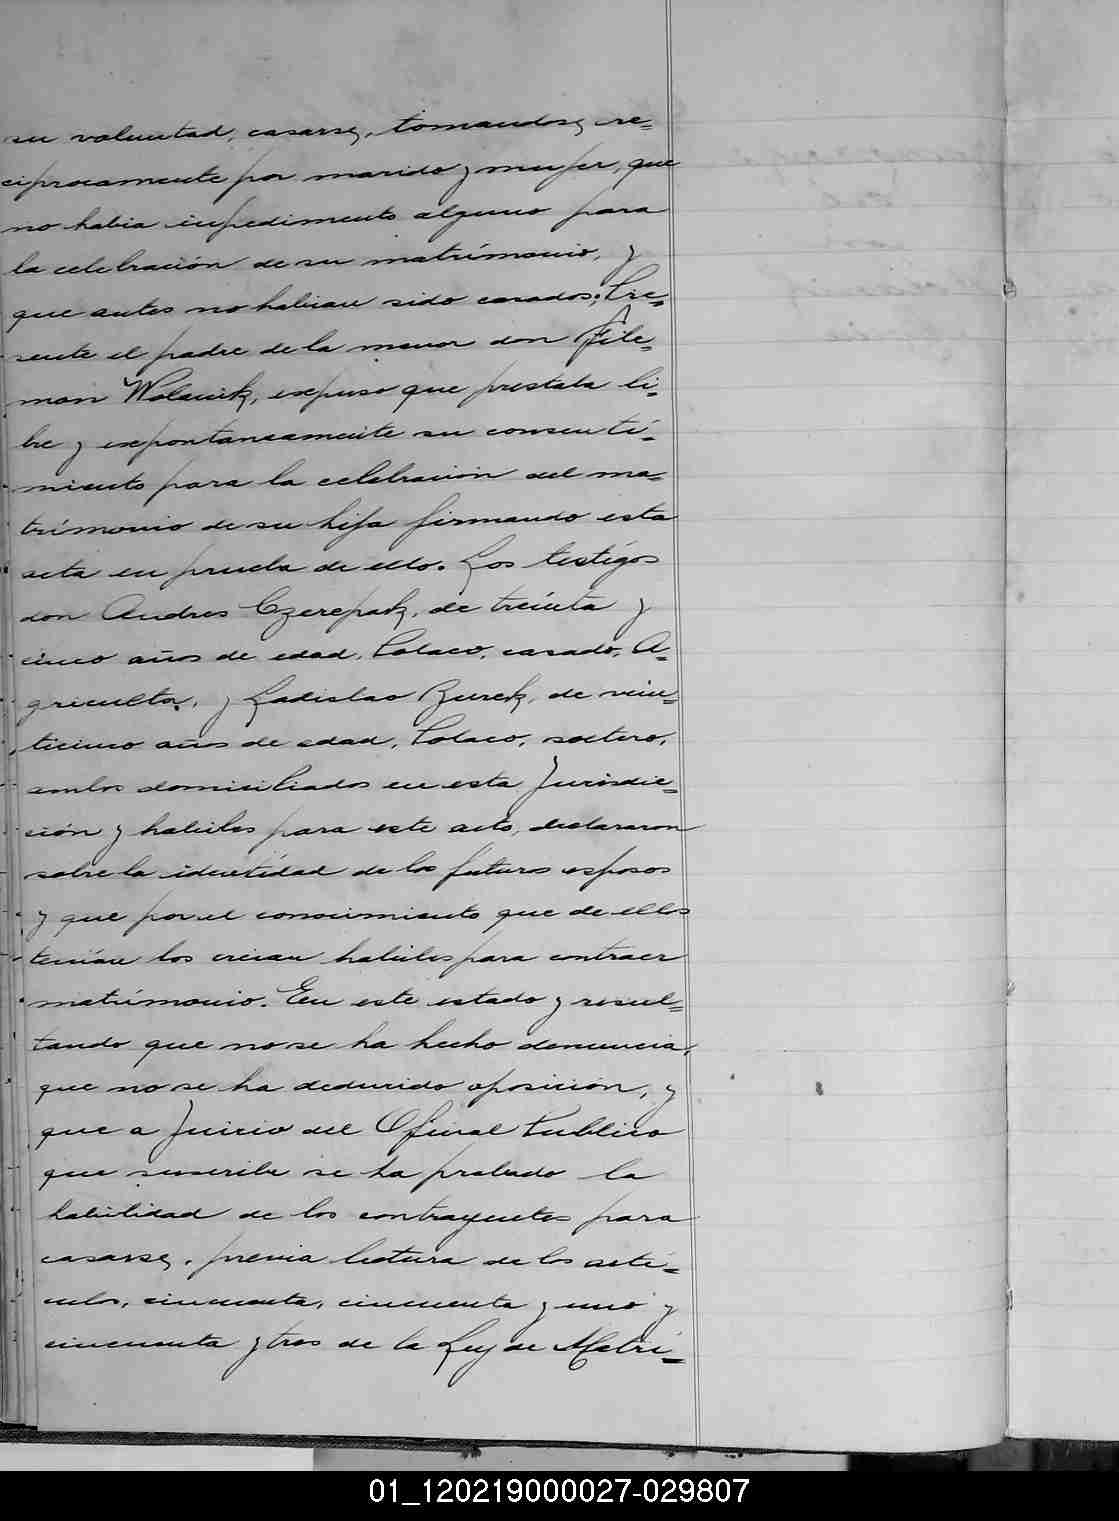 su voluntad, casarse, tomandose re=
ciprocamente por marido y mujer, que
no habia inpedimento alguno para
la celebración de su matrimonio, y
que antes no habian sido casados; Pre=
sente el padre de la menor don File=
mon Wolanik, expuso que prestaba li=
bre y expontaneamente su consenti=
miento para la celebración del ma=
trimonio de su hija firmando esta
acta en prueba de ello. Los testigos
don Andres Czerepak, de treinta y
cinco años de edad, Polaco, casado, A=
gricultor, y Ladislao Zurek, de vein=
ticinco años de edad, Polaco, soltero,
ambos domiciliados en esta Jurisdic=
ción y habiles para este acto, declararon
sobre la identidad de los futuros esposos
y que por el conocimiento que de ellos
tenian los creian habiles para contraer
matrimonio. En este estado y resul=
tando que no se ha hecho denuncia,
que no se ha deducido oposición, y
que a Juicio del Oficial Publico
que suscribe se ha probado la
habilidad de los contrayentes para
casarse, previa lectura de los artí=
culos, cincuenta, cincuenta y uno y
cincuenta y tres de la Ley de Matri=
01_120219000027-029807